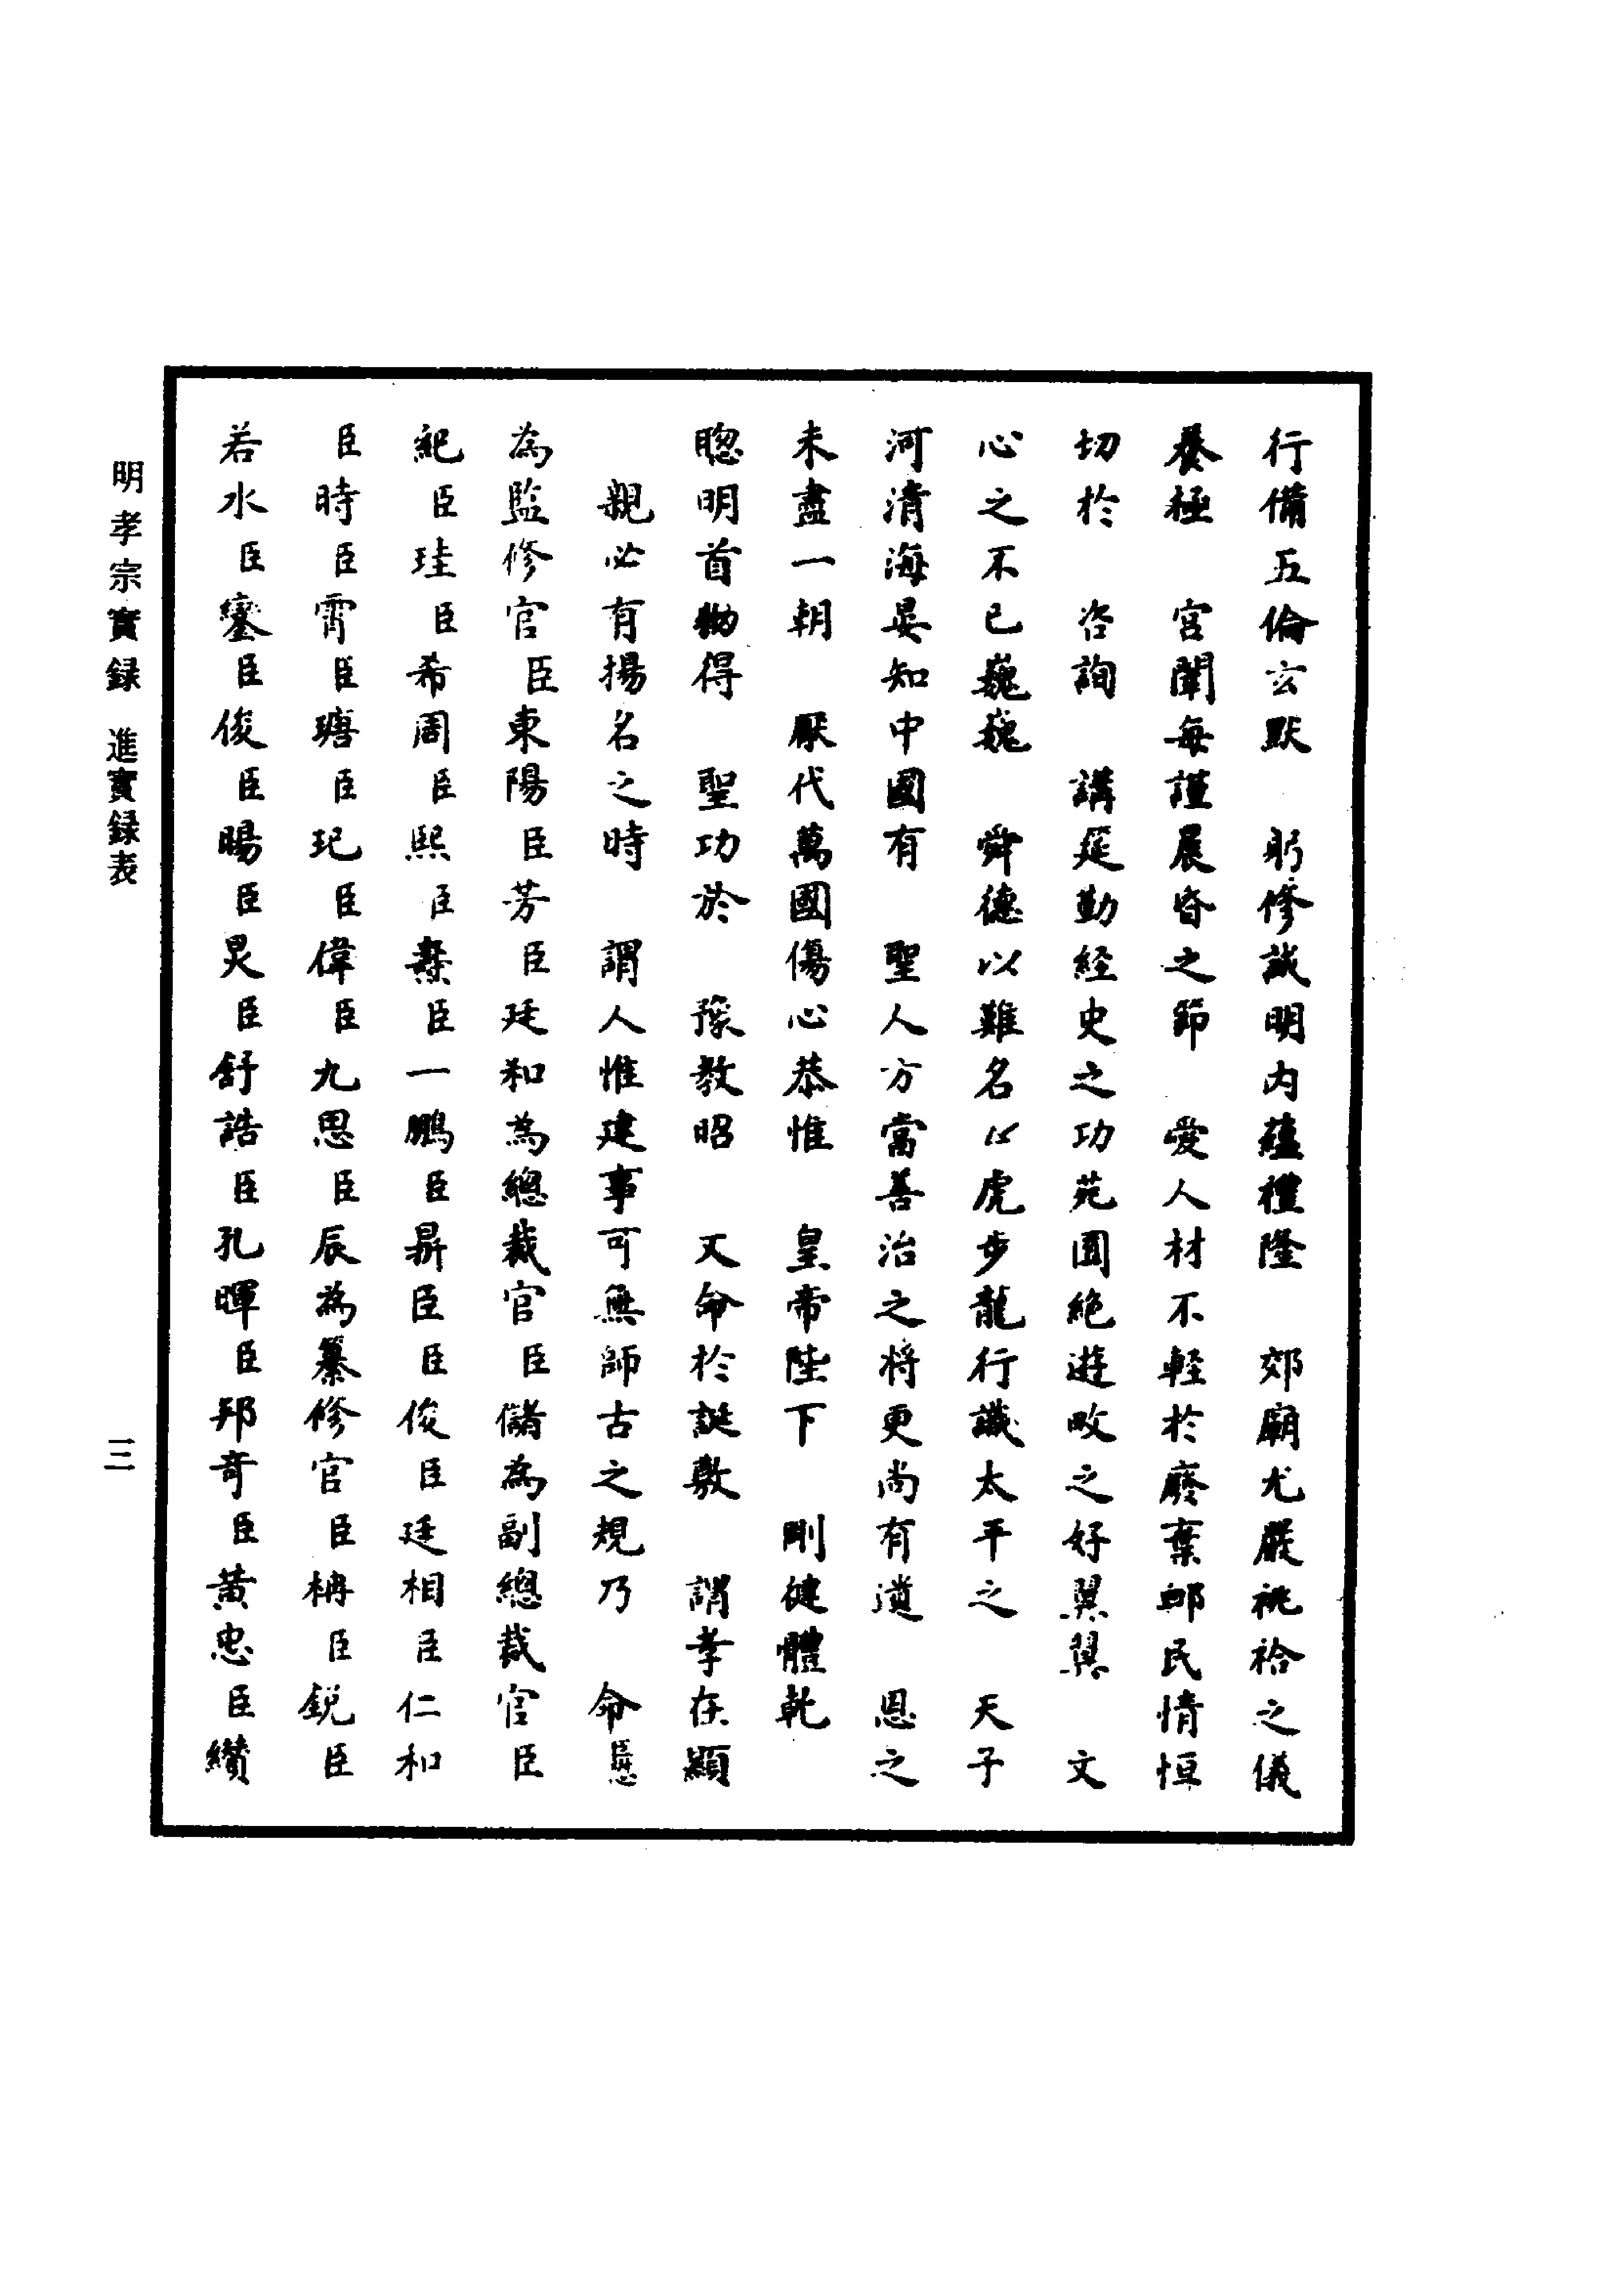 行備五倫玄默　躬修誠明內蘊禮隆　郊廟尤嚴祧祫之儀
養極　宮闈每謹晨昏之節　愛人材不輕於廢棄邺民情恒
切於　咨詢　講筵勤経史之功苑囿絶遊畋之好翼翼　文
心之不已巍巍　舜德以難名以虎步龍行識太平之　天子
河清海晏知中國有　聖人方當善治之将更尚有遺　恩之
未盡一朝　厭代萬國傷心恭惟　皇帝陛下　剛健體乾
聰明首物得　聖功於　豫教昭　又命於誕敷　謂孝在顯
親必有揚名之時　謂人惟建事可無師古之規乃　命臣懋
為監修官臣東陽臣芳臣廷和為總裁官臣儲為副總裁官臣
紀臣珪臣希周臣熙臣纛臣一鵬臣鼎臣臣俊臣廷相臣仁和
臣時臣霄臣瑭臣玘臣偉臣九思臣辰為纂修官臣枬臣銳臣
若水臣鑾臣俊臣暘臣炅臣舒誥臣孔暉臣邦奇臣黃忠臣纘
明孝宗實録　進實録表　三